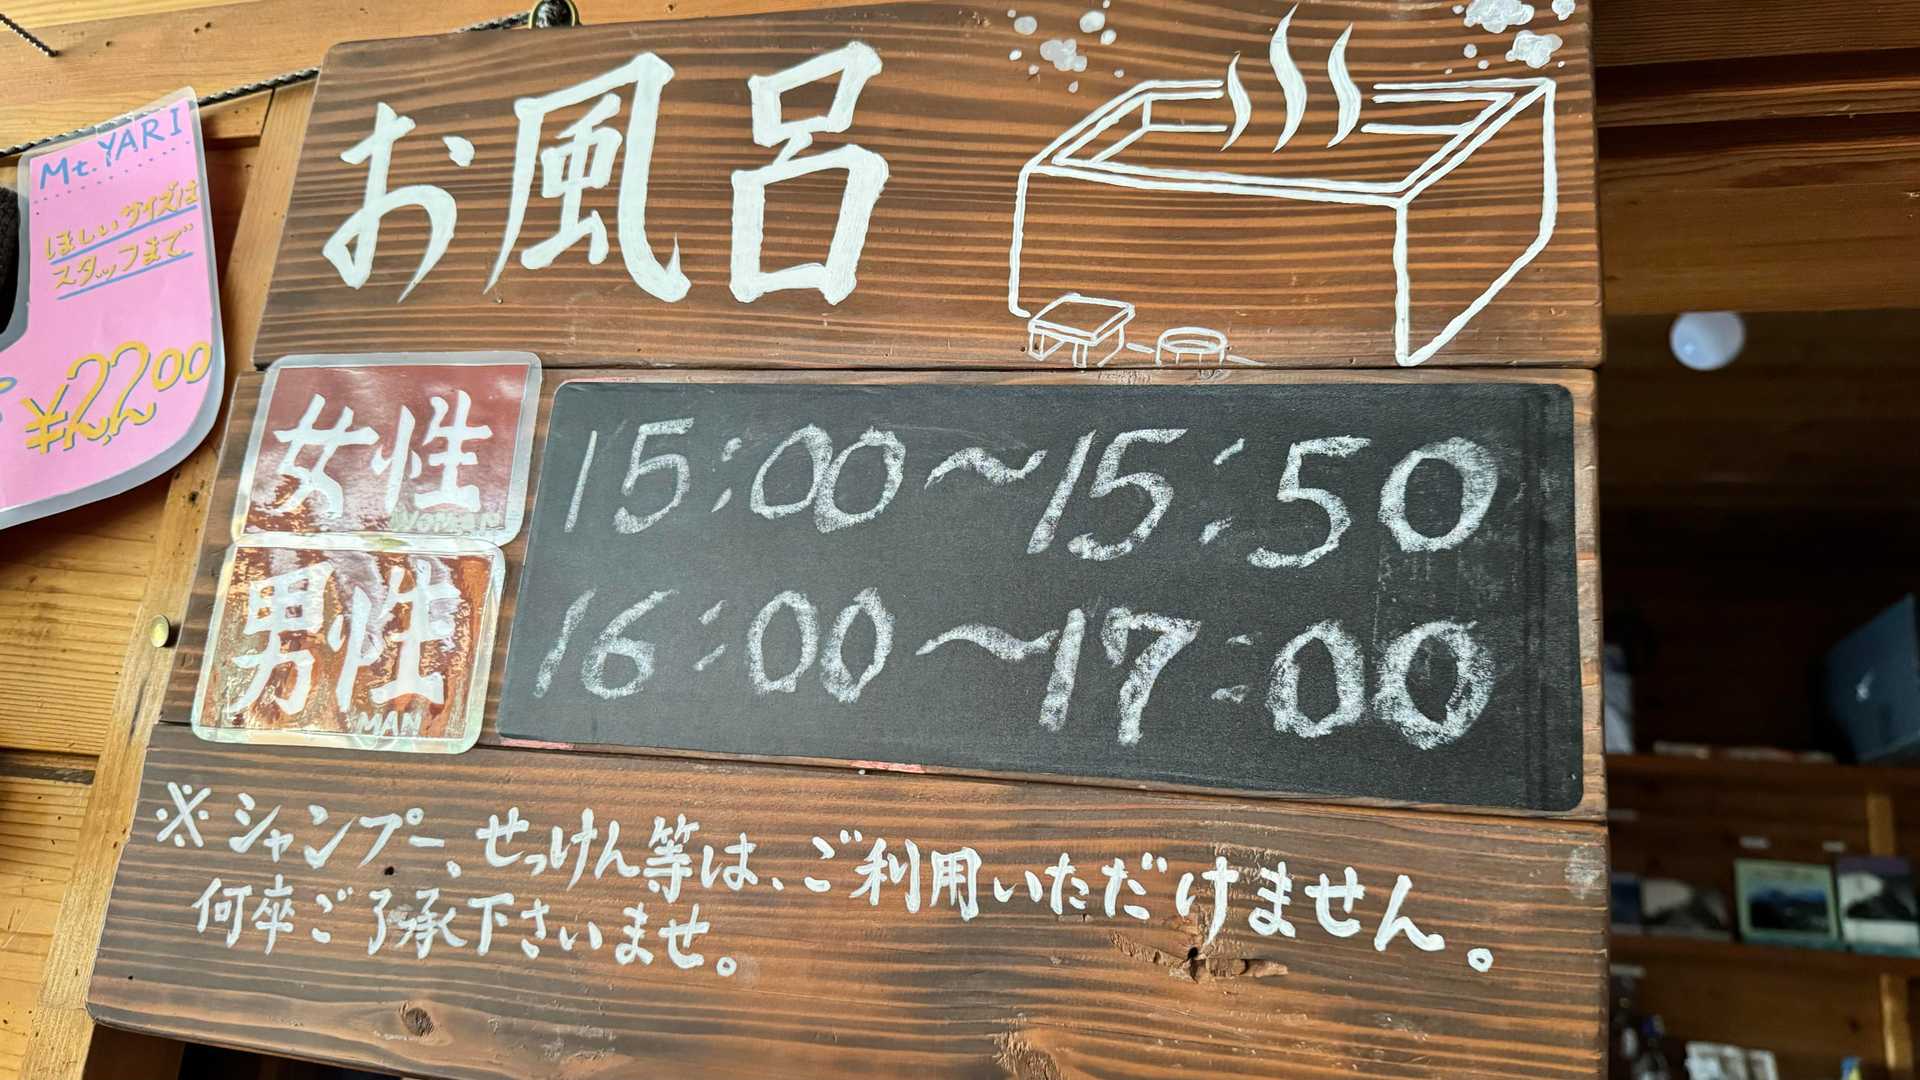 お風呂
女性 WOMAN 15:00〜15:50
男性 MAN 16:00〜17:00
※シャンプー、せっけん等は、ご利用いただけません。
何卒ご了承下さいませ。
Mt. YARI
ほしいサイズは
スタッフまで
¥2200